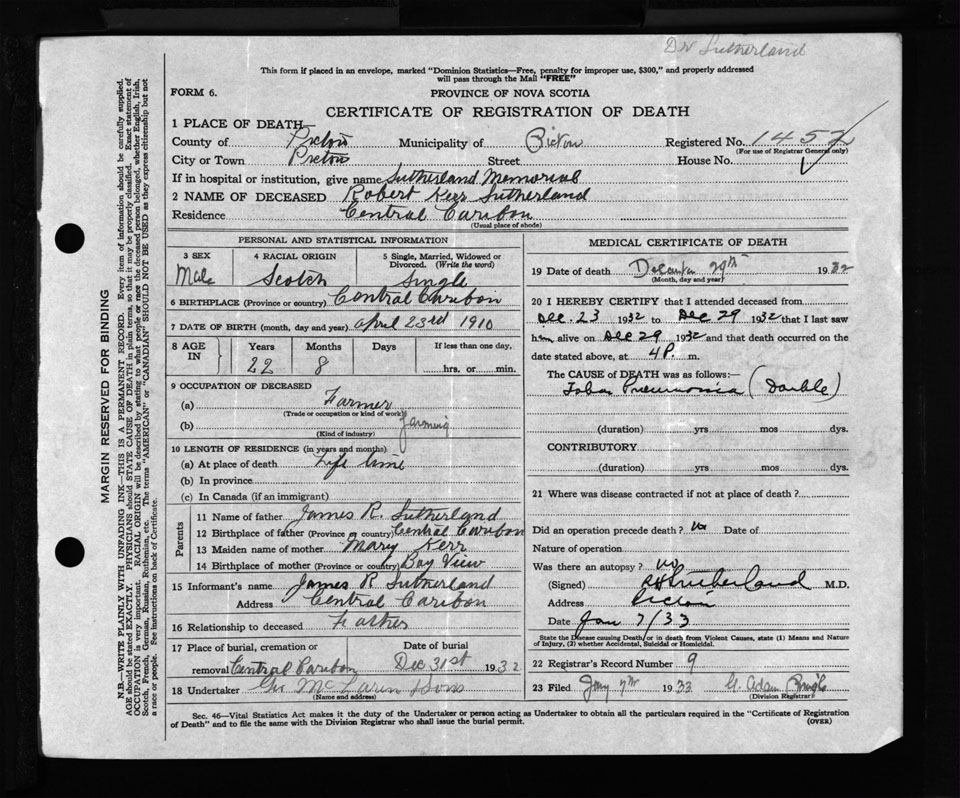 Dr Sutherland
This form if placed in an envelope, marked "Dominion Statistics—Free, penalty for improper use, $300," and properly addressed
will pass through the Mail "FREE"
FORM 6.
PROVINCE OF NOVA SCOTIA
CERTIFICATE OF REGISTRATION OF DEATH
1 PLACE OF DEATH—
County of Pictou Municipality of Pictou Registered No. 1457
(For use of Registrar General only)
City or Town Pictou Street House No.
If in hospital or institution, give name Sutherland Memorial
2 NAME OF DECEASED Robert Kerr Sutherland
Residence Central Caribou
(Usual place of abode)
PERSONAL AND STATISTICAL INFORMATION
3 SEX 4 RACIAL ORIGIN 5 Single, Married, Widowed or Divorced. (Write the word)
Male Scotch Single
6 BIRTHPLACE (Province or country) Central Caribou
7 DATE OF BIRTH (month, day and year) April 23rd 1910
8 AGE IN Years Months Days If less than one day,
22 8 hrs. or min.
9 OCCUPATION OF DECEASED
(a) Farmer
(Trade or occupation or kind of work)
(b) farming
(Kind of industry)
10 LENGTH OF RESIDENCE (in years and months)
(a) At place of death Life time
(b) In province
(c) In Canada (if an immigrant)
Parents
11 Name of father James R. Sutherland
12 Birthplace of father (Province or country) Central Caribou
13 Maiden name of mother Mary Kerr
14 Birthplace of mother (Province or country) Bay View
15 Informant's name James R Sutherland
Address Central Caribou
16 Relationship to deceased Father
17 Place of burial, cremation or Date of burial
removal Central Caribou Dec 31st 1932
18 Undertaker Geo McLaren & Sons
(Name and address)
MEDICAL CERTIFICATE OF DEATH
19 Date of death December 29th 1932
(Month, day and year)
20 I HEREBY CERTIFY that I attended deceased from
Dec. 23 1932 to Dec 29 1932 that I last saw
him alive on Dec 29 1932 and that death occurred on the
date stated above, at 4 P. m.
The CAUSE of DEATH was as follows:—
Lobar Pneumonia (Double)
(duration) yrs mos dys.
CONTRIBUTORY
(duration) yrs mos dys.
21 Where was disease contracted if not at place of death?
Did an operation precede death? no Date of
Nature of operation
Was there an autopsy? no
(Signed) Sutherland M.D.
Address Pictou
Date Jan 7/33
State the Disease causing Death, or in death from Violent Causes, state (1) Means and Nature
of Injury, (2) whether Accidental, Suicidal or Homicidal.
22 Registrar's Record Number 9
23 Filed Jany 7th 1933 G. Adam
(Division Registrar)
Sec. 46—Vital Statistics Act makes it the duty of the Undertaker or person acting as Undertaker to obtain all the particulars required in the "Certificate of Registration
of Death" and to file the same with the Division Registrar who shall issue the burial permit. (OVER)
MARGIN RESERVED FOR BINDING
N.B.—WRITE PLAINLY WITH UNFADING INK—THIS IS A PERMANENT RECORD. Every item of information should be carefully supplied.
AGE should be stated EXACTLY. PHYSICIANS should STATE CAUSE OF DEATH in plain terms, so that it may be properly classified. Exact statement of
OCCUPATION is very important. RACIAL ORIGIN will be described by stating to what people or race the deceased person belonged, whether English, Irish,
Scotch, French, German, Russian, Ruthenian, etc. The terms "AMERICAN" or "CANADIAN" SHOULD NOT BE USED as they express citizenship but not
a race or people. See instructions on back of Certificate.